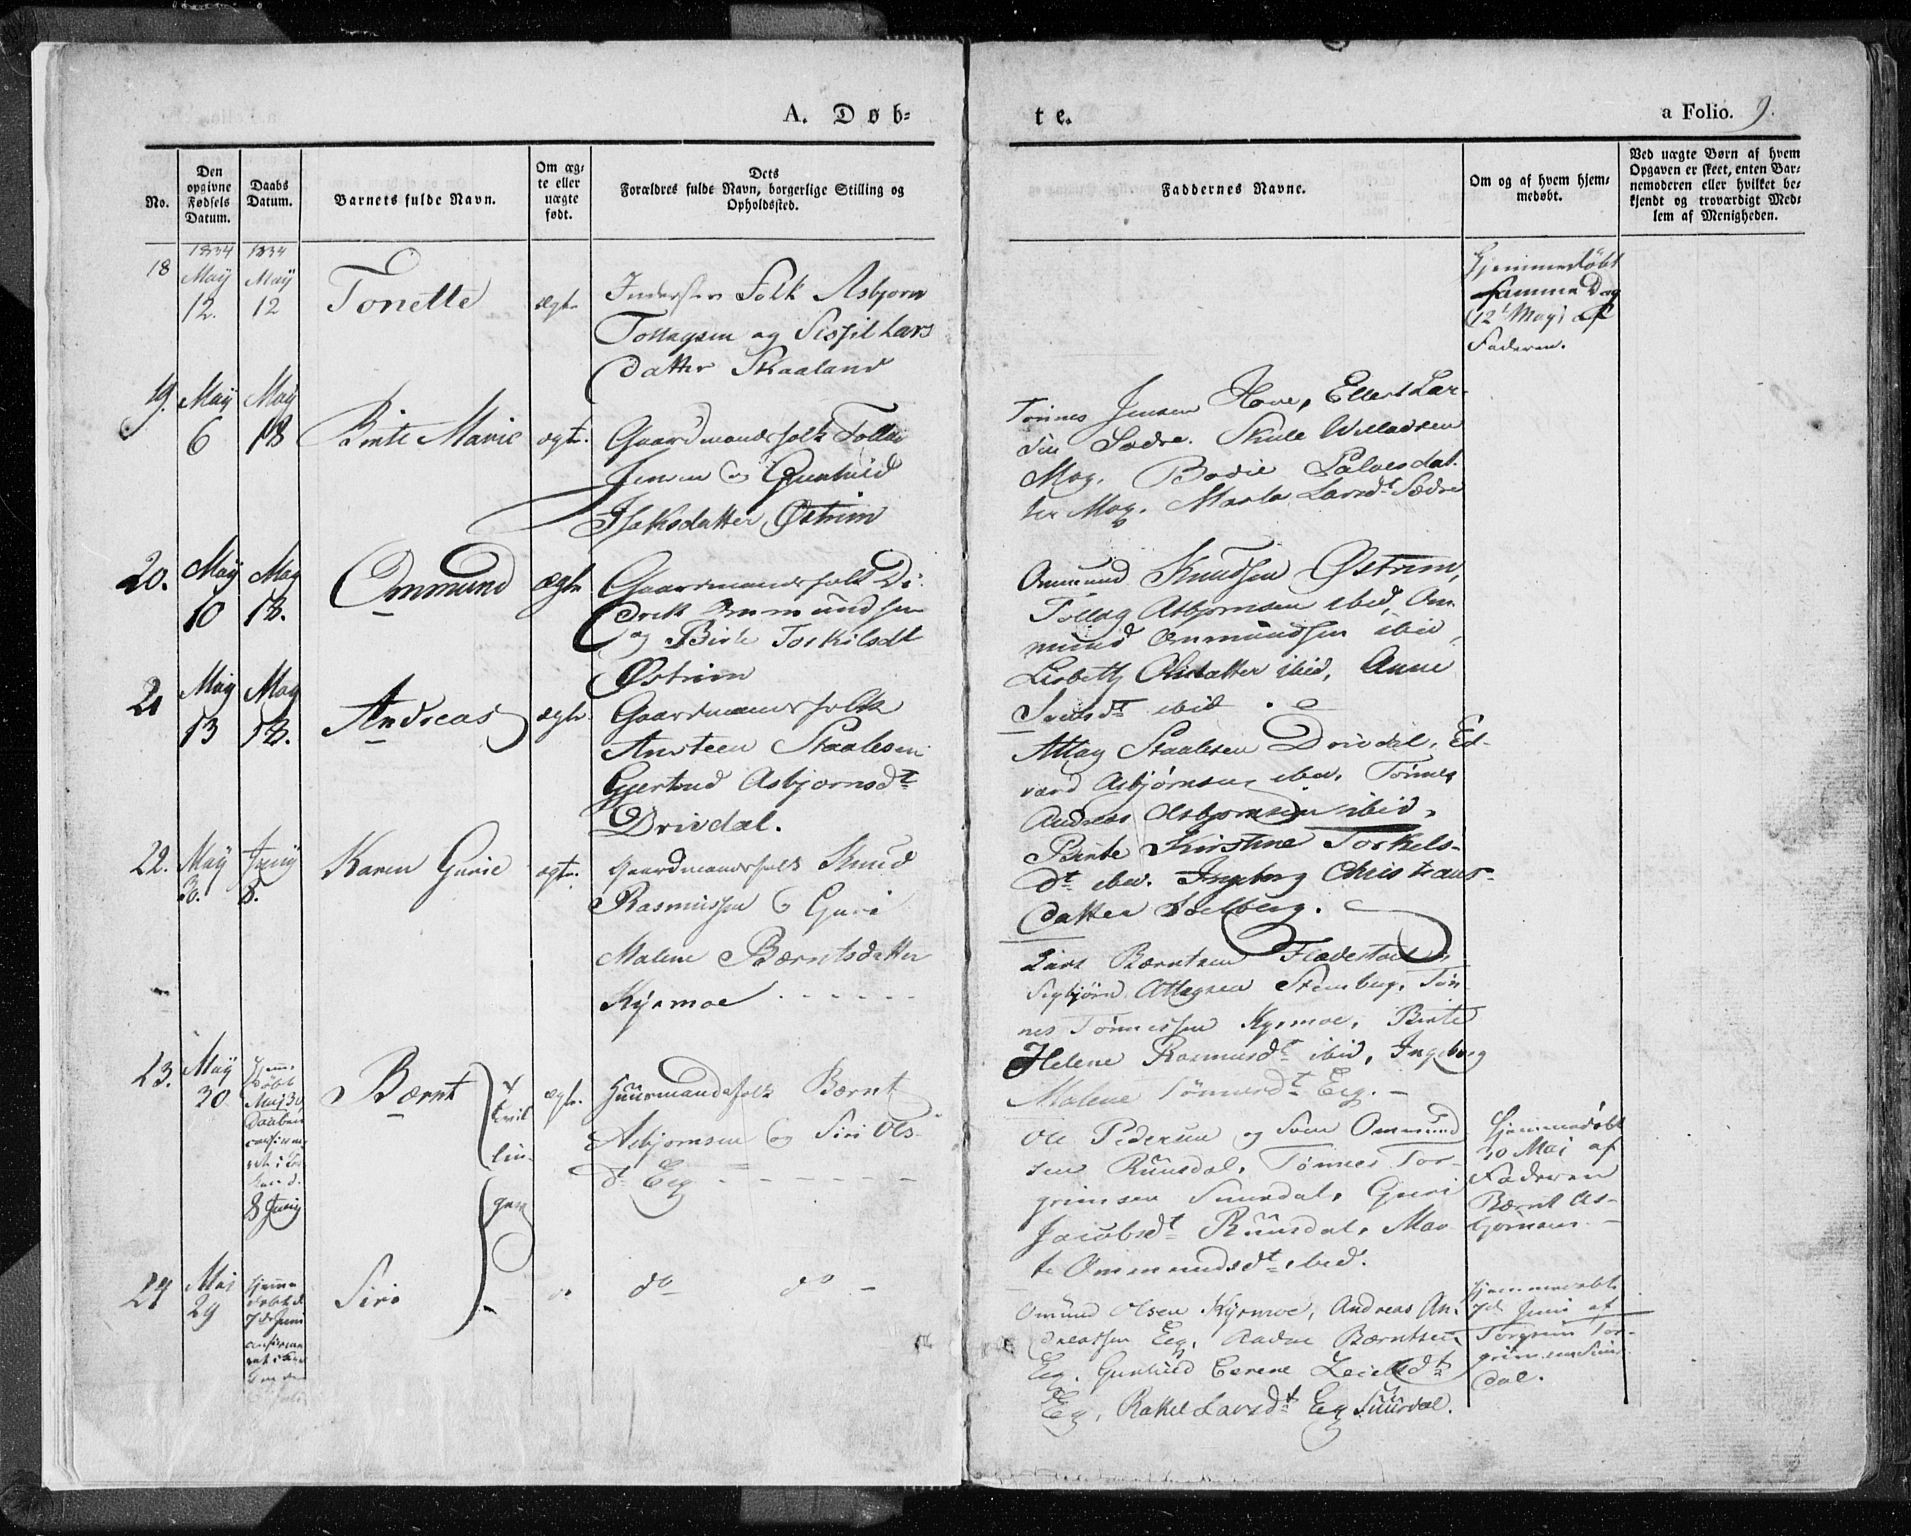 A. Døb-
te.
a Folio. 9.
No.
Den opgivne Fødsels Datum.
Daabs Datum.
Barnets fulde Navn.
Om ægte eller uægte født.
Dets Forældres fulde Navn, borgerlige Stilling og Opholdssted.
Faddernes Navne.
Om og af hvem hjemmedøbt.
Ved uægte Børn af hvem Opgaven er skeet, enten Barnemoderen eller hvilket bekjendt og troværdigt Medlem af Menigheden.
1834 1834
18 Maÿ Maÿ
12. 12
Tonette
ægte
Folk Asbjørn
Tollagsen og Lars
datter Skaaland
Hjemmedøbt
samme Dag
12t Maÿ af
Faderen.
19. Maÿ May
6 18
Binte Marie
ægte.
Gaardmandsfolk Tollag
Jensen og Gunhild
Isaksdatter, Østrim
Tønnes Jensen Hove, Ellert Lar-
sen Sædre. Skule Willadsen
Mog. Bodil
ter Mog. Marta Larsdt Sædre
20. May May
10 18.
Ommund
ægte
Gaardmandsfolk Di-
drik Ommundsen
og Birte Torkilsdt
Østrim
Ommund Knudsen Østrim,
Tollag Asbjørnsen ibid, Om-
mund Ommundsen ibid,
Lisbeth Olsdatter ibid, Anne
ibid
21 May May
13 18.
Andreas
ægte.
Gaardmandsfolk
Ansteen Staalesen
Gjertrud Asbjørnsdt
Drivdal.
Attlag Staalesen Drivdal, Ed-
vard Asbjørnsen ibid. Tønnes
Andreas Asbjørnsen ibid,
Binte Kirstine Torkels-
dt ibid. Ingeborg Christians-
datter
22. Maÿ Junÿ
30. 8.
Karen Gurie
ægte.
Gaardmandsfolk Knud
Rasmussen & Guri
Malene Bærntsdatter
Kÿrmoe
Lars Bærntsen
Sigbjørn Attlagsen Tøn-
nes Tønnessen Kyrmoe, Binte
Helene Rasmusdt ibid, Ingeborg
Malene Tønnesdt Eeg.
23. Maÿ
30
Hjemme
døbt
Maj 30
Daaben
8 Junÿ
Bærnt
tvil
lin-
ger
ægte.
Huusmandsfolk Bærnt
Asbjørnsen og Siri Ols-
dt Eeg
Ole Pedersen og Ommund
sen Ruusdal, Tønnes Tor-
grimsen Suurdal, Guri
Jacobsdt Ruusdal, Mar-
te Ommundsdt ibid.
Hjemmedøbt
30 Mai af
Faderen
Bærnt As-
bjørnsen.
24 Mai
29
Hjemme
døbt d
7de Juni
Siri
do do
Omund Olsen Kyrmoe, Andreas An-
dreassen Eeg, Bærntsen
Eeg, Gunhild
Eeg, Rakel Larsdt Eeg Suurdal.
Hjemmedøbt
7d Juni af
Torgrim Tor-
grimsen Suur
dal.